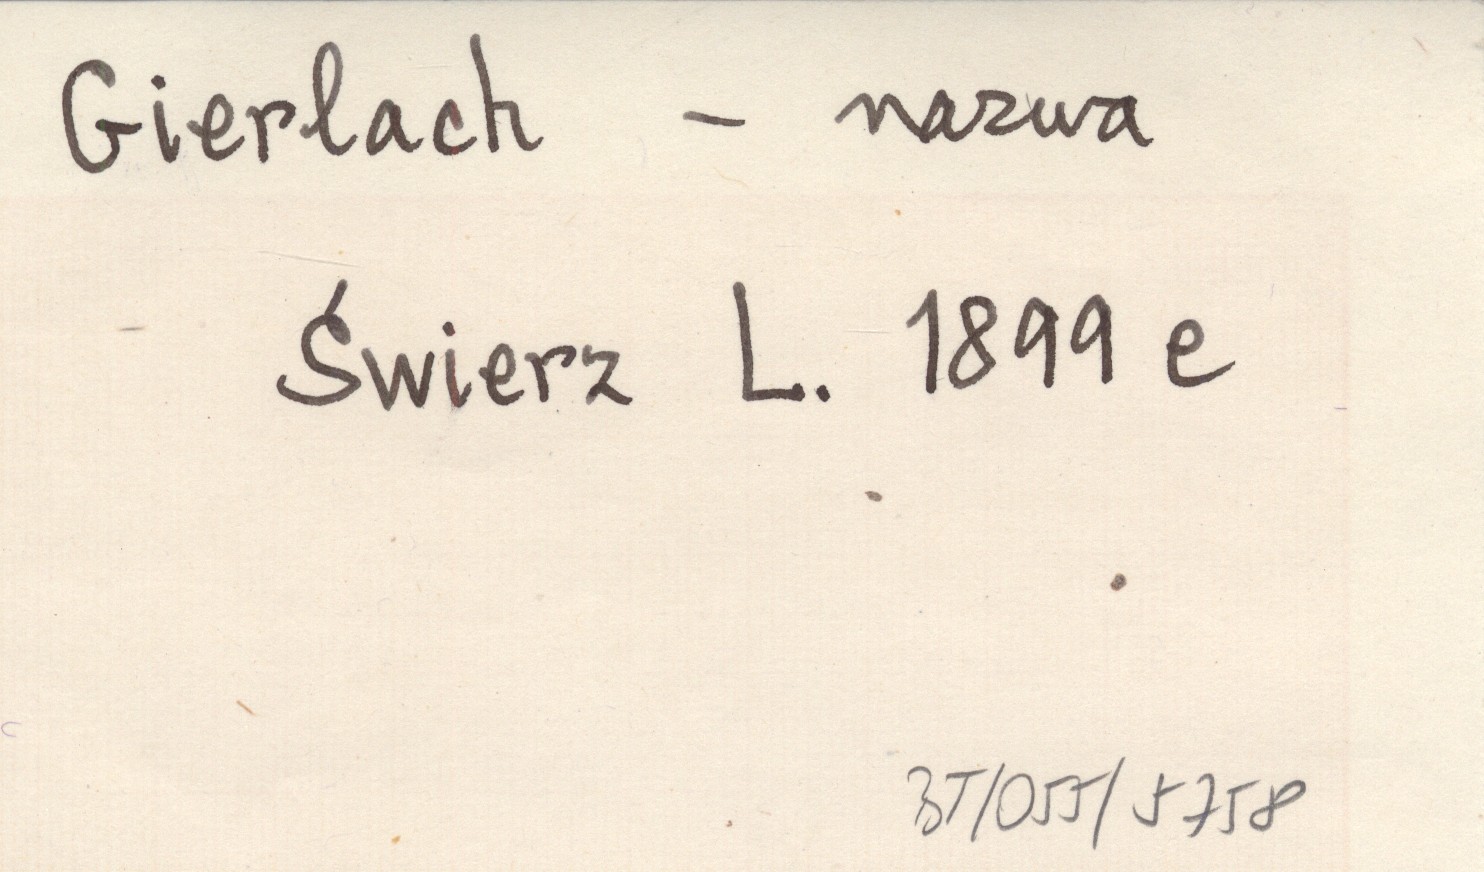 Gierlach - nazwa
Świerz L. 1899 e
BT/055/5758